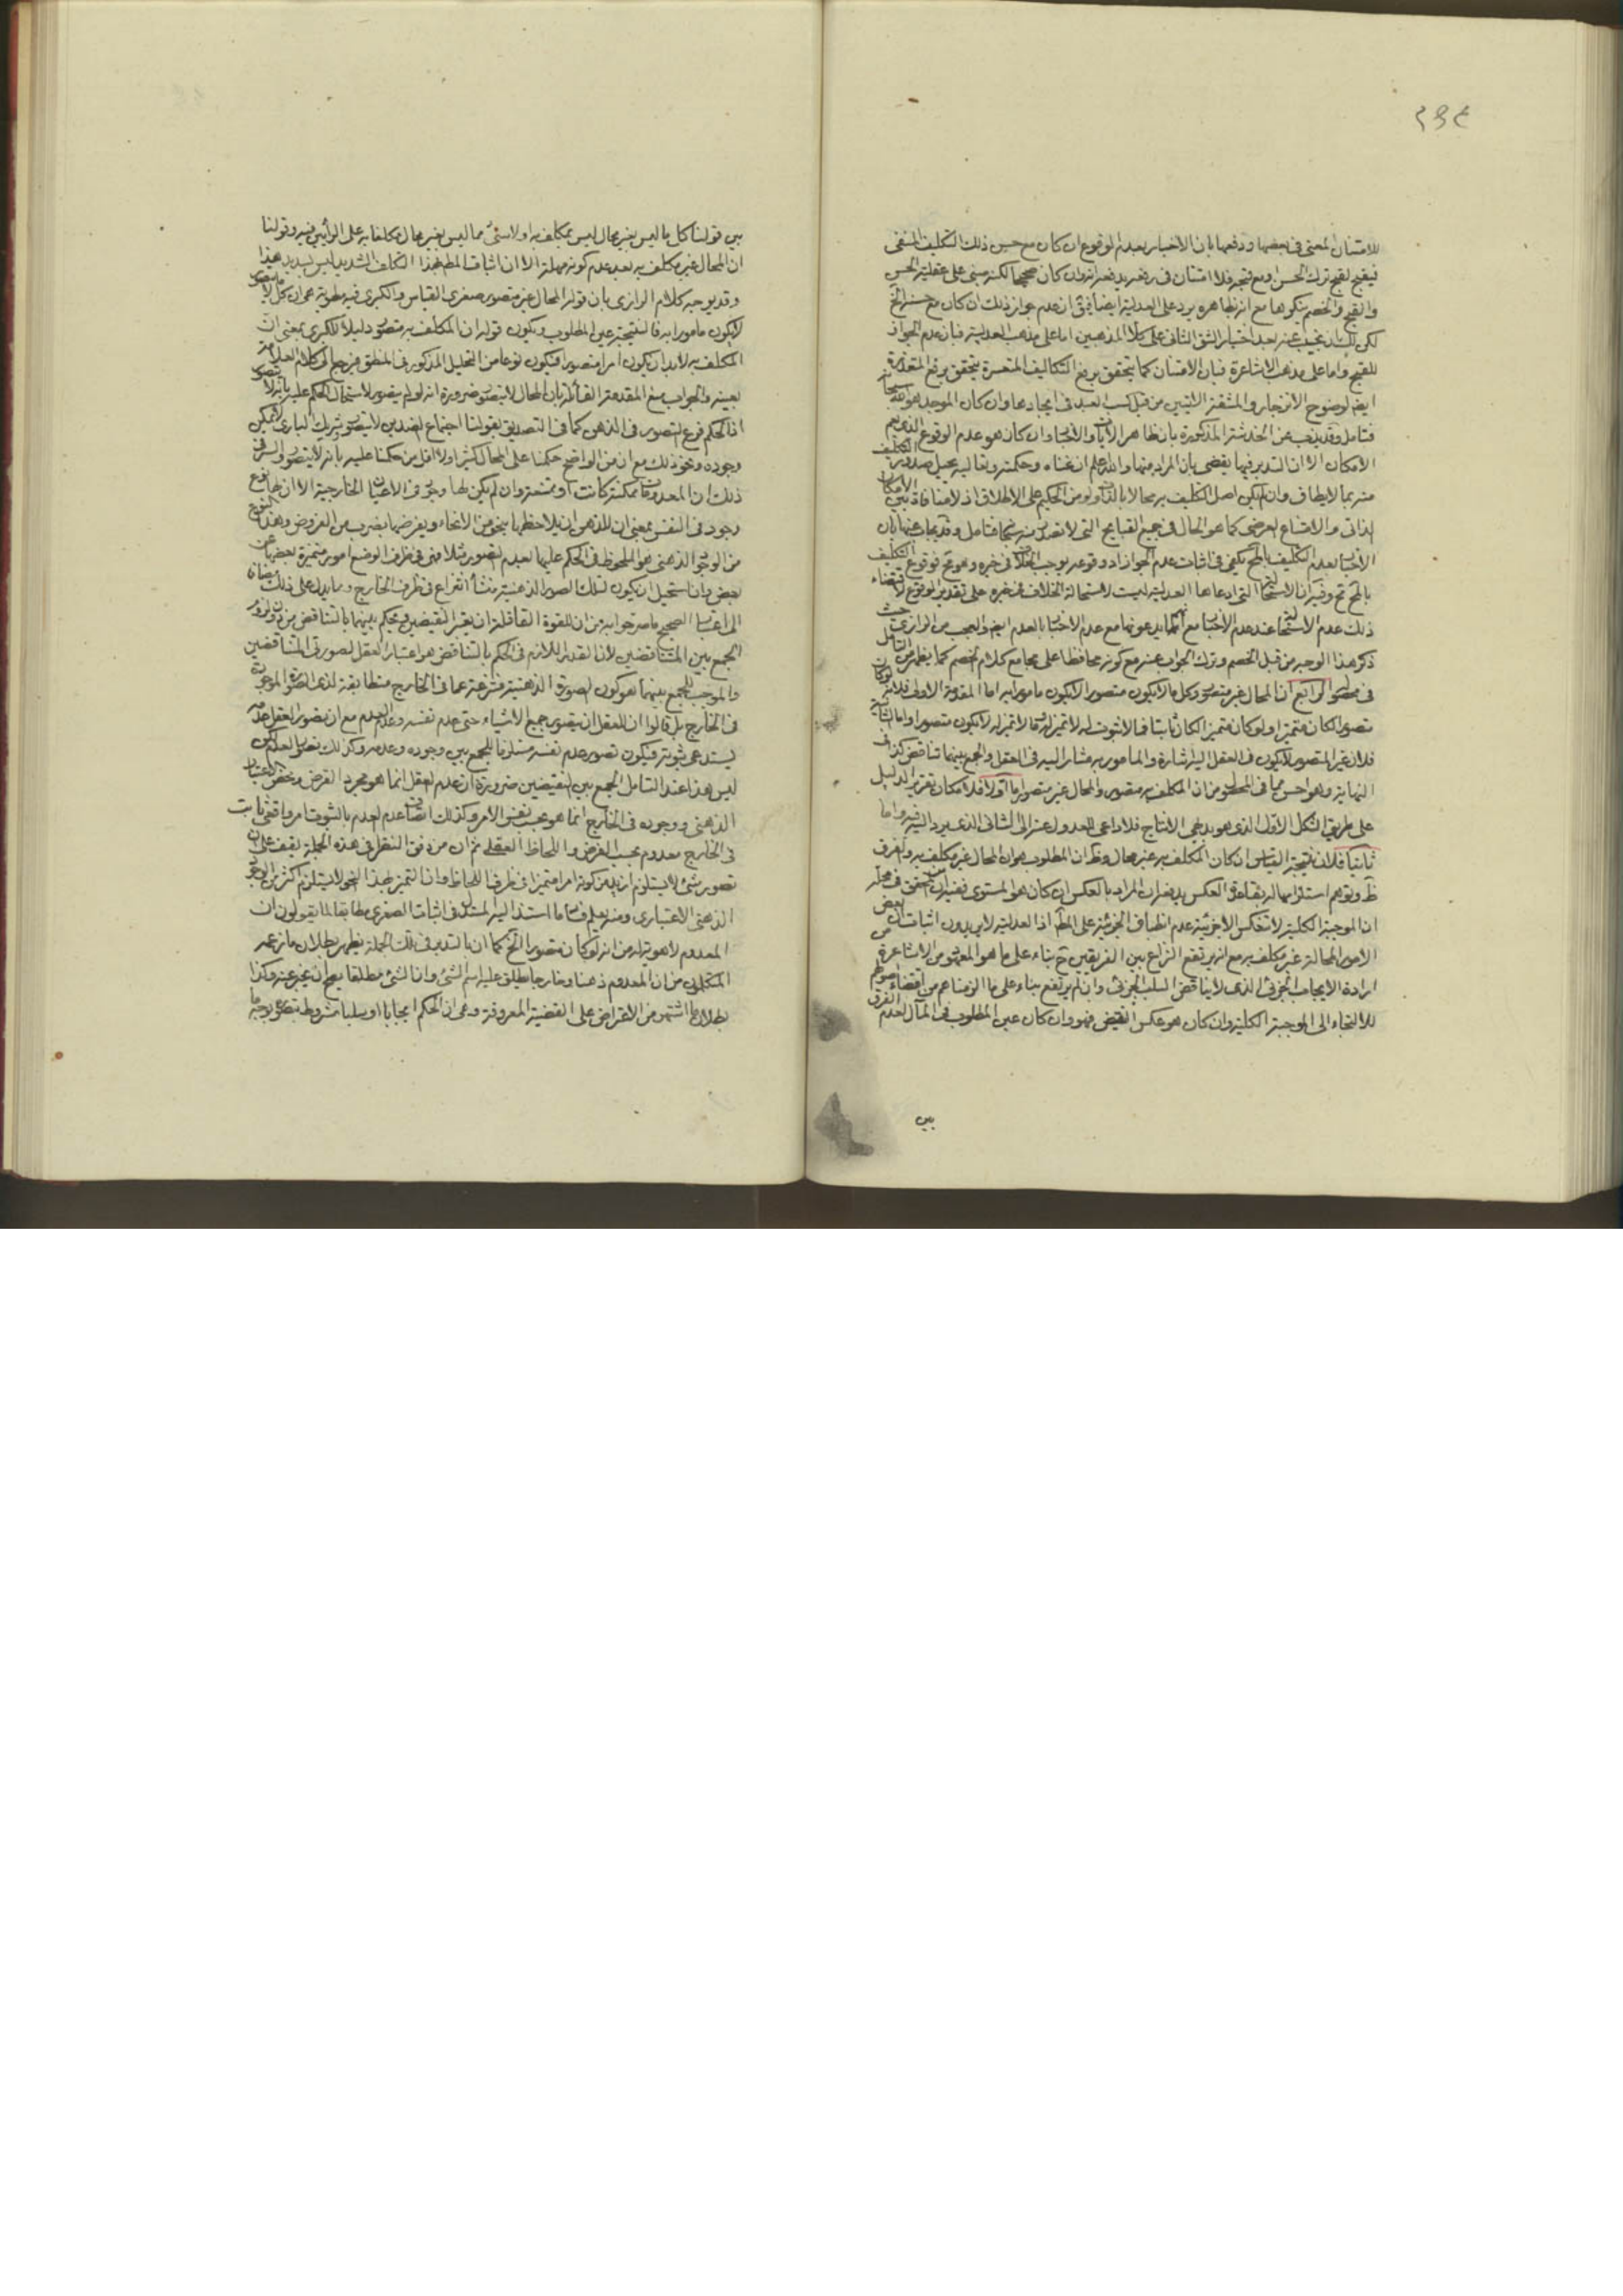 ٢٩٤
للامتنان المعنى في بعضها ودفعها بان الاخبار بعدم الوقوع ان كان مع حسن ذلك التكليف المنفى
فيقبح لقبح ترك الحسن او مع قبحه فلا امتنان في رفعه يدفعه انه وان كان صحيحا لكنه مبنى على عقلية الحسن
والقبح والخصم ينكرها مع انه بظاهره يرد على العدلية ايضا ان عدم جواز ذلك ان كان مع حسنه الخ
لكن لك ان تجيب عنه بعد اختيار الشق الثانى على كلا المذهبين اما على مذهب العدلية فبان عدم الجواز
للقبح واما على مذهب الاشاعرة فبان الامتنان كما يتحقق برفع التكاليف المتعسرة يتحقق برفع المتعذرة
ايضا لوضوح الانزجار والمشقة الاتيتين من قبل كسب العبد في ايجادها وان كان الموجد هو الله
فتامل وقد يذب عن الخدشة المذكورة بان ظاهر الايات والاخبار وان كان هو عدم الوقوع الذي يعم
الامكان الا ان التدبر فيها يقضى بان المراد منها والله اعلم ان غناه وحكمته وتعاليه يحيل صدور التكليف
منه بما لايطاق وان لم يكن اصل التكليف به محالا بالذات ومن الحكيم على الاطلاق اذ لا منافاة بين الامكان
الذاتى والامتناع العرضى كما هو الحال في جميع القبايح التى لا تصدر منه فتامل وقد يجاب عنها بان
الاخبار بعدم التكليف بالمح يكفى في اثبات عدم الجواز اذ وقوعه يوجب الخلاف في خبره وهو مح فوقوع التكليف
بالمح مح وفيه ان الاستحالة التى ادعاها العدلية ليست لاستحالة الخلاف في خبره على تقدير الوقوع لاقتضاء
ذلك عدم الاستحالة عند عدم الاخبار مع انهم يدعونها مع عدم الاخبار بالعدم ايضا والعجب من الرازى حيث
ذكر هذا الوجه من قبل الخصم وترك الجواب عنه مع كونه محافظا على مجامع كلام الخصم كما يظهر من التامل
في محصوله الرابع ان المحال غير متصور وكل ما لا يكون متصورا لا يكون مامورا به اما المقدمة الاولى فلانه لو كان
متصورا لكان متميزا ولو كان متميزا لكان ثابتا فما لا ثبوت له لا تميز له وما لا تميز له لا يكون متصورا واما الثانية
فلان غير المتصور لا يكون في العقل اليه اشارة والمامور به مشار اليه في العقل والجمع بينهما تناقض كذا في
النهاية وهو احسن مما في المحصول من ان المكلف به متصور والمحال غير متصور اما اولا فلامكان تقرير الدليل
على طريق الشكل الاول الذى هو بديهى الانتاج فلا داعى للعدول عنه الى الثانى الذى يرد اليه فيه واما
ثانيا فلان نتيجة القياس ان كان المكلف به غير محال وظ ان المطلوب هو ان المحال غير مكلف به والفرق
ظ وتوهم استلزامها له بقاعدة العكس يدفعه ان المراد بالعكس ان كان هو المستوى ففيه ان المحقق في محله
ان الموجبة الكلية لا تنعكس الا جزئية عدم انطباق الجزئية على المط اذ العدلية لا يريدون اثبات ان بعض
الامور المحالة غير مكلف به مع انه يرتفع النزاع بين الفريقين ح بناء على ما هو المعهود من الاشاعرة من
ارادة الايجاب الجزئى الذى لا يناقض السلب الجزئى وان لم يرتفع بناء على ما الزمناهم من اقتضاء اصولهم
للالتجاء الى الموجبة الكلية وان كان هو عكس النقيض فهو وان كان عين المطلوب في المآل لعدم الفرق
بين
بين قولنا كل ما ليس بغير محال ليس بمكلف به او لا شئ مما ليس بغير محال مكلفا به على الرأيين فيه وقولنا
ان المحال غير مكلف به بعد عدم كونه مهملة الا ان اثبات المط بهذا التكلف الشديد ليس بسديد هذا
وقد يوجه كلام الرازى بان قوله المحال غير متصور صغرى القياس والكبرى فيه مطوية هى ان كل ما لا يتصور
لا يكون مامورا به فالنتيجة عين المطلوب ويكون قوله ان المكلف به متصور دليلا للكبرى بمعنى ان
المكلف به لا بد ان يكون امرا متصورا فيكون نوعا من التحليل المذكور في المنطق فيرجع الى كلام العلامة
بعينه والجواب منع المقدمة القائلة بان المحال لا يتصور ضرورة انه لو لم يتصور لاستحال الحكم عليه بانه لا يتصور
اذ الحكم فرع التصور في الذهن كما في التصديق بقولنا اجتماع الضدين لا يتصور وشريك البارى لا يمكن
وجوده ونحو ذلك مع ان من الواضح حكمنا على المحال كثيرا ولا اقل من حكمنا عليه بانه لا يتصور والسر في
ذلك ان المعدومات ممكنة كانت او ممتنعة وان لم يكن لها وجود في الاعيان الخارجية الا ان لها نوع
وجود في النفس بمعنى ان للذهن ان يلاحظها بنحو من الانحاء ويفرضها بضرب من الفروض وهذا النوع
من الوجود الذهنى هو الملحوظ في الحكم عليها بعدم التصور مثلا فهى في ظرف الوضع امور متميزة بعضها عن
بعض وان استحيل ان يكون لتلك الصور الذهنية منشأ انتزاع في ظرف الخارج ومما يدل على ذلك مضافا
الى اعتبار الصحيح ما صرحوا به من ان للقوة العاقلة ان يعتبر النقيضين ويحكم بينهما بالتناقض من دون لزوم
الجمع بين المتناقضين لان القدر اللازم في الحكم بالتناقض هو اعتبار العقل لصورتى المتناقضين
والموجب للجمع بينهما هو كون الصورة الذهنية منتزعة عما في الخارج متطابقة لذى الصورة الموجودة
في الخارج بل قالوا ان للعقل ان يتصور جميع الاشياء حتى عدم نفسه وعدم العدم مع ان تصور العقل عدمه
يستدعى ثبوته فيكون تصور عدم نفسه مستلزما للجمع بين وجوده وعدمه وكذلك تصور العدم لكن
ليس هذا عند التامل الجمع بين النقيضين ضرورة ان عدم العقل انما هو مجرد الفرض ومحض الاعتبار
الذهنى ووجوده في الخارج انما هو بحسب نفس الامر وكذلك اتصاف عدم العدم بالثبوت امر واقعى ثابت
في الخارج معدوم بحسب الفرض واللحاظ العقلى ثم ان من دقق النظر في هذه الجملة يقف على ان
تصور شئ لا يستلزم ازيد من كونه امرا متميزا في ظرف اللحاظ وان التميز بهذا النحو لا يستلزم اكثر من الوجود
الذهنى الاعتبارى ومنه يعلم فساد ما استند اليه المستدل في اثبات الصغرى مطابقا لما يقولون ان
المعدوم لا هوية له من انه لو كان متصورا الخ كما ان بالتدبر في تلك الجملة يظهر بطلان ما زعمه
المتكلمون من ان المعدوم ذهنا وخارجا يطلق عليه اسم الشئ وان الشئ مطلقا يصح ان يخبر عنه وكذا
بطلان ما اشتهر من الاعتراض على القضية المعروفة وهى ان الحكم ايجابا او سلبا مشروط بتصور بوجه ما